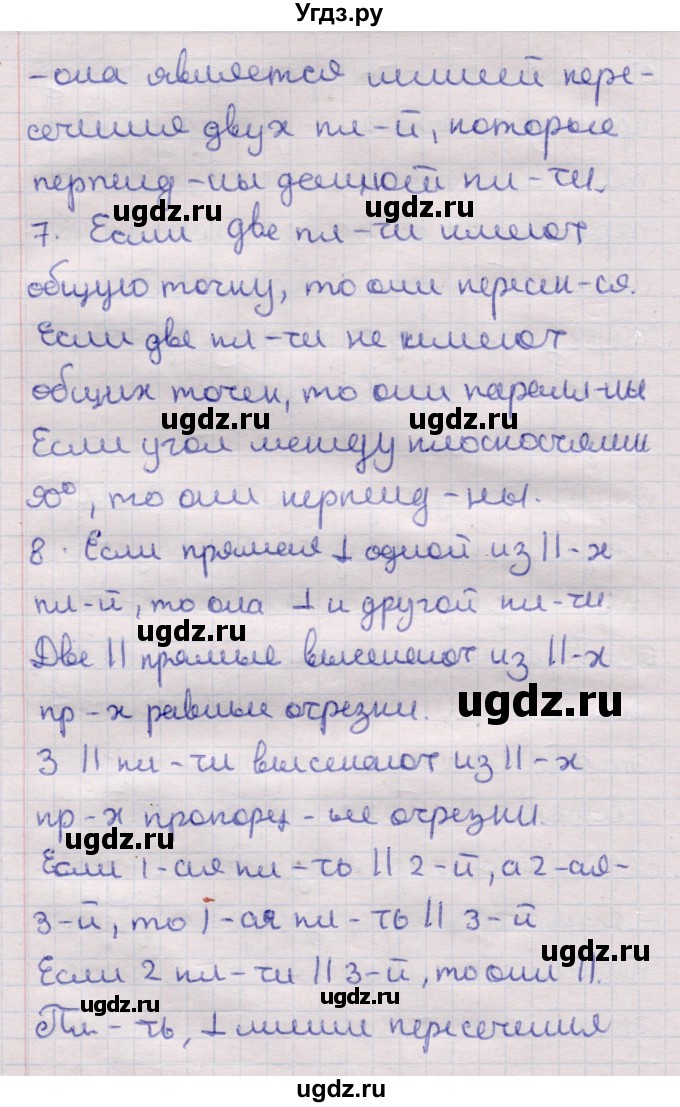 Угдз.ру
- она является линией пере-
сечения двух пл-й, которые
перпенд-ны данной пл-ти.
ugdz.ru ugdz.ru
7. Если две пл-ти имеют
общую точку, то они пересек-ся.
Если две пл-ти не имеют
общих точек, то они паралл-ны
ugdz.ru ugdz.ru
Если угол между плоскостями
90°, то они перпенд-ны.
ugdz.ru
8. Если прямая ⊥ одной из ||-х
пл-й, то она ⊥ и другой пл-ти.
ugdz.ru
Две || прямые высекают из ||-х
пр-х равные отрезки.
ugdz.ru
3 || пл-ти высекают из ||-х
пр-х пропорц-ые отрезки.
ugdz.ru
Если 1-ая пл-ть || 2-й, а 2-ая-
3-й, то 1-ая пл-ть || 3-й
ugdz.ru
Если 2 пл-ти || 3-й, то они ||.
ugdz.ru ugdz.ru
Пл-ть, ⊥ линии пересечения
ugdz.ru